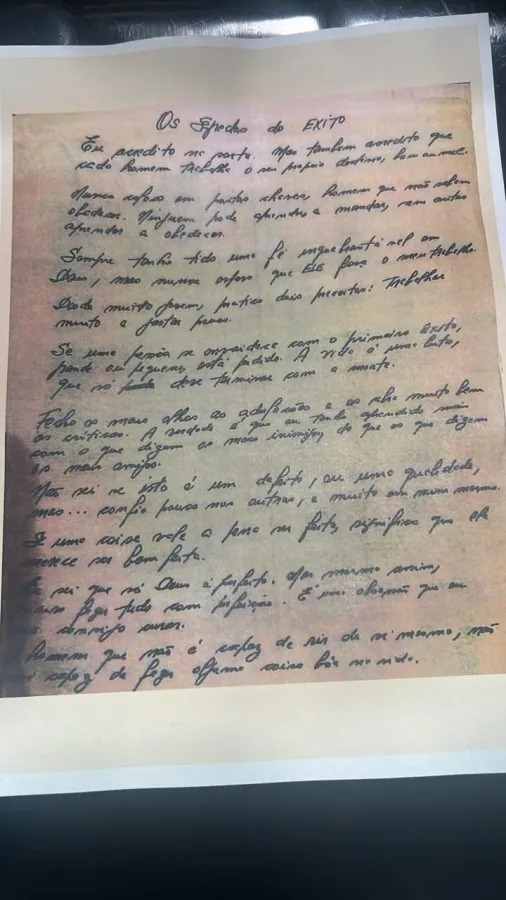 Os Segredos do EXITO
Eu acredito na sorte. Mas tambem acredito que
cada homem trabalha o seu proprio destino, bom ou mal.
Nunca esforo em postos chaves, homem que não sabem
obedecer. Ninguem pode aprender a mandar, sem antes
aprender a obedecer.
Sempre tenho tido uma fé inquebrantável em
Deus, mas nunca espero que ELE faça o meu trabalho.
Desde muito jovem, pratico dois preceitos: Trabalhar
muito e gastar pouco.
Se uma pessoa se envaidece com o primeiro Exito,
grande ou pequeno, está perdido. A vida é uma luta,
que só deve terminar com a morte.
Fecho os meus olhos as adulações e os abro muito bem
as criticas. A verdade é que eu tenho aprendido mais
com o que dizem os meus inimigos, do que os que dizem
os meus amigos.
Não sei se isto é um defeito, ou uma qualidade,
mas... confio pouco nos outros, e muito em mim mesmo.
Se uma coisa vale a pena ser feita, significa que ela
merece ser bem feita.
Eu sei que só Deus é perfeito. Mas mesmo assim,
faça tudo com perfeição. É uma obsessão que eu
consigo curar.
homem que não é capaz de rir de si mesmo, não
é capaz de fazer alguma coisa bôa na vida.